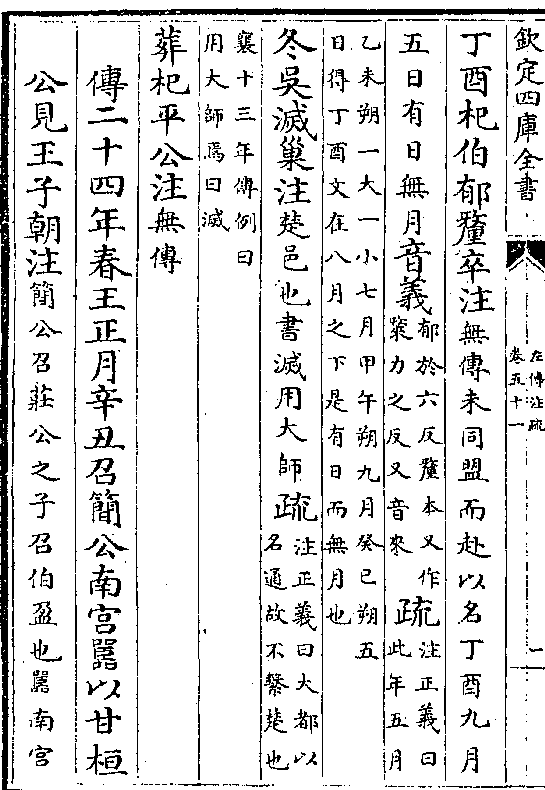 欽定四庫全書
左傳注疏
卷五十一
一
丁酉杞伯郁釐卒注無傳未同盟而赴以名丁酉九月
五日有日無月音義郁於六反釐本又作
斄力之反又音來
疏注正義曰
此年五月
乙未朔一大一小七月甲午朔九月癸巳朔五
日得丁酉文在八月之下是有日而無月也
冬吳滅巢注楚邑也書滅用大師疏注正義曰大都以
名通故不繫楚也
襄十三年傳例曰
用大師焉曰滅
葬杞平公注無傳
傳二十四年春王正月辛丑召簡公南宮嚚以甘桓
公見王子朝注簡公召莊公之子召伯盈也嚚南宮